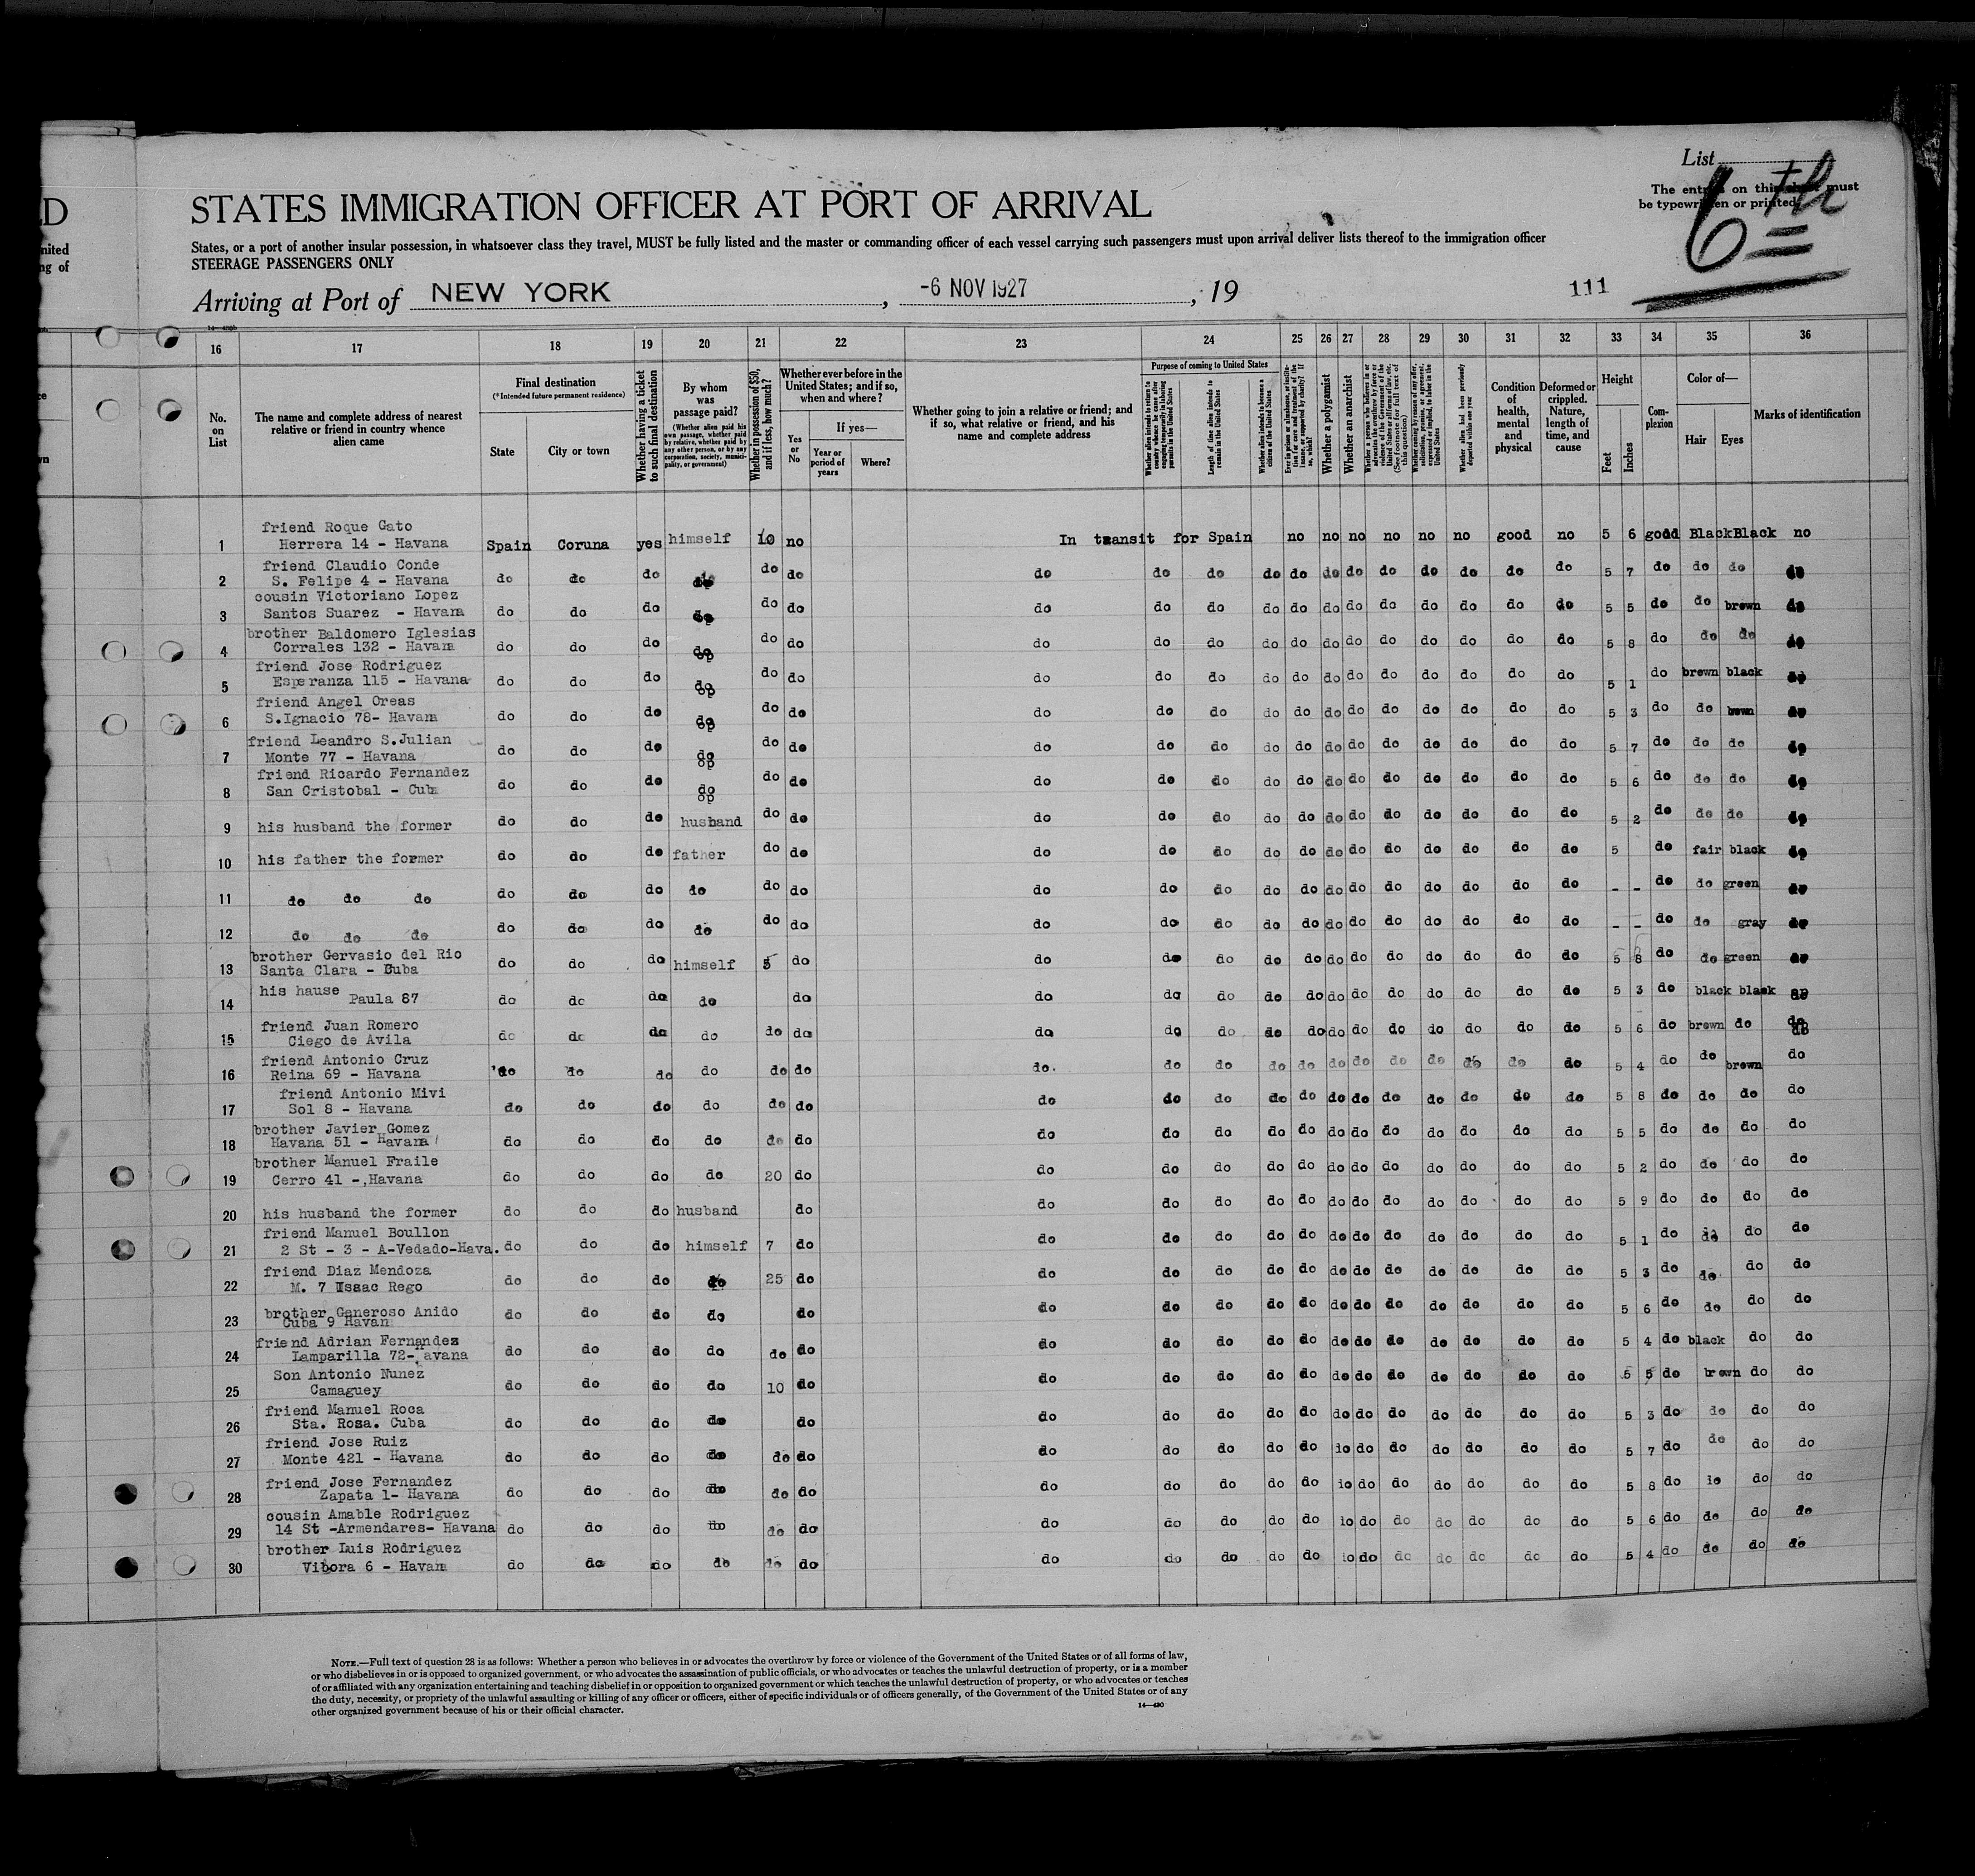 List
6th
The entries on this sheet must
be typewritten or printed
D
STATES IMMIGRATION OFFICER AT PORT OF ARRIVAL
nited
ng of
States, or a port of another insular possession, in whatsoever class they travel, MUST be fully listed and the master or commanding officer of each vessel carrying such passengers must upon arrival deliver lists thereof to the immigration officer
STEERAGE PASSENGERS ONLY
Arriving at Port of NEW YORK, -6 NOV 1927, 19
111
16 17 18 19 20 21 22 23 24 25 26 27 28 29 30 31 32 33 34 35 36
No. on List
The name and complete address of nearest relative or friend in country whence alien came
Final destination
(*Intended future permanent residence)
State
City or town
Whether having a ticket to such final destination
By whom was passage paid?
(Whether alien paid his own passage, whether paid by relative, whether paid by any other person, or by any corporation, society, municipality, or government)
Whether in possession of $50, and if less, how much?
Whether ever before in the United States; and if so, when and where?
Yes or No
If yes—
Year or period of years
Where?
Whether going to join a relative or friend; and if so, what relative or friend, and his name and complete address
Purpose of coming to United States
Length of time alien intends to remain in the United States
Whether a polygamist
Whether an anarchist
Condition of health, mental and physical
Deformed or crippled. Nature, length of time, and cause
Height
Feet
Inches
Complexion
Color of—
Hair
Eyes
Marks of identification
1 friend Roque Cato Herrera 14 - Havana Spain Coruna yes himself 10 no In transit for Spain no no no no no no good no 5 6 good Black Black no
2 friend Claudio Conde S. Felipe 4 - Havana do do do do do do do do do do do do do do do do do do do 5 7 do do do do
3 cousin Victoriano Lopez Santos Suarez - Havana do do do do do do do do do do do do do do do do do do do 5 5 do do brown do
4 brother Baldomero Iglesias Corrales 132 - Havana do do do do do do do do do do do do do do do do do do do 5 8 do do do do
5 friend Jose Rodriguez Esperanza 115 - Havana do do do do do do do do do do do do do do do do do do do 5 1 do brown black do
6 friend Angel Oreas S.Ignacio 78- Havana do do do do do do do do do do do do do do do do do do do 5 3 do do brown do
7 friend Leandro S.Julian Monte 77 - Havana do do do do do do do do do do do do do do do do do do do 5 7 do do do do
8 friend Ricardo Fernandez San Cristobal - Cuba do do do do do do do do do do do do do do do do do do do 5 6 do do do do
9 his husband the former do do do husband do do do do do do do do do do do do do do do 5 2 do do do do
10 his father the former do do do father do do do do do do do do do do do do do do do 5 do fair black do
11 do do do do do do do do do do do do do do do do do do do do do do - - do do green do
12 do do do do do do do do do do do do do do do do do do do do do do - - do do gray do
13 brother Gervasio del Rio Santa Clara - Cuba do do do himself 5 do do do do do do do do do do do do do do 5 8 do do green do
14 his hause Paula 87 do do do do do do do do do do do do do do do do do do 5 3 do black black do
15 friend Juan Romero Ciego de Avila do do do do do do do do do do do do do do do do do do do 5 6 do brown do do
16 friend Antonio Cruz Reina 69 - Havana do do do do do do do. do do do do do do do do do do do do 5 4 do do brown do
17 friend Antonio Mivi Sol 8 - Havana do do do do do do do do do do do do do do do do do do do 5 8 do do do do
18 brother Javier Gomez Havana 51 - Havana do do do do do do do do do do do do do do do do do do do 5 5 do do do do
19 brother Manuel Fraile Cerro 41 -,Havana do do do do 20 do do do do do do do do do do do do do do 5 2 do do do do
20 his husband the former do do do husband do do do do do do do do do do do do do do 5 9 do do do do
21 friend Manuel Boullon 2 St - 3 - A-Vedado-Hava. do do do himself 7 do do do do do do do do do do do do do do 5 1 do do do do
22 friend Diaz Mendoza M. 7 Issac Rego do do do do 25 do do do do do do do do do do do do do do 5 3 do do do do
23 brother Generoso Anido Cuba 9 Havan do do do do do do do do do do do do do do do do do do 5 6 do do do do
24 friend Adrian Fernandez Lamparilla 72-Havana do do do do do do do do do do do do do do do do do do do 5 4 do black do do
25 Son Antonio Nunez Camaguey do do do do 10 do do do do do do do do do do do do do do 5 5 do brown do do
26 friend Manuel Roca Sta. Rosa. Cuba do do do do do do do do do do do do do do do do do do 5 3 do do do do
27 friend Jose Ruiz Monte 421 - Havana do do do do do do do do do do do do do do do do do do do 5 7 do do do do
28 friend Jose Fernandez Zapata 1- Havana do do do do do do do do do do do do do do do do do do do 5 8 do do do do
29 cousin Amable Rodriguez 14 St -Armendares- Havana do do do do do do do do do do do do do do do do do do do 5 6 do do do do
30 brother Luis Rodriguez Vibora 6 - Havana do do do do do do do do do do do do do do do do do do do 5 4 do do do do
NOTE.—Full text of question 28 is as follows: Whether a person who believes in or advocates the overthrow by force or violence of the Government of the United States or of all forms of law,
or who disbelieves in or is opposed to organized government, or who advocates the assassination of public officials, or who advocates or teaches the unlawful destruction of property, or is a member
of or affiliated with any organization entertaining and teaching disbelief in or opposition to organized government or which teaches the unlawful destruction of property, or who advocates or teaches
the duty, necessity, or propriety of the unlawful assaulting or killing of any officer or officers, either of specific individuals or of officers generally, of the Government of the United States or of any
other organized government because of his or their official character.
14—430